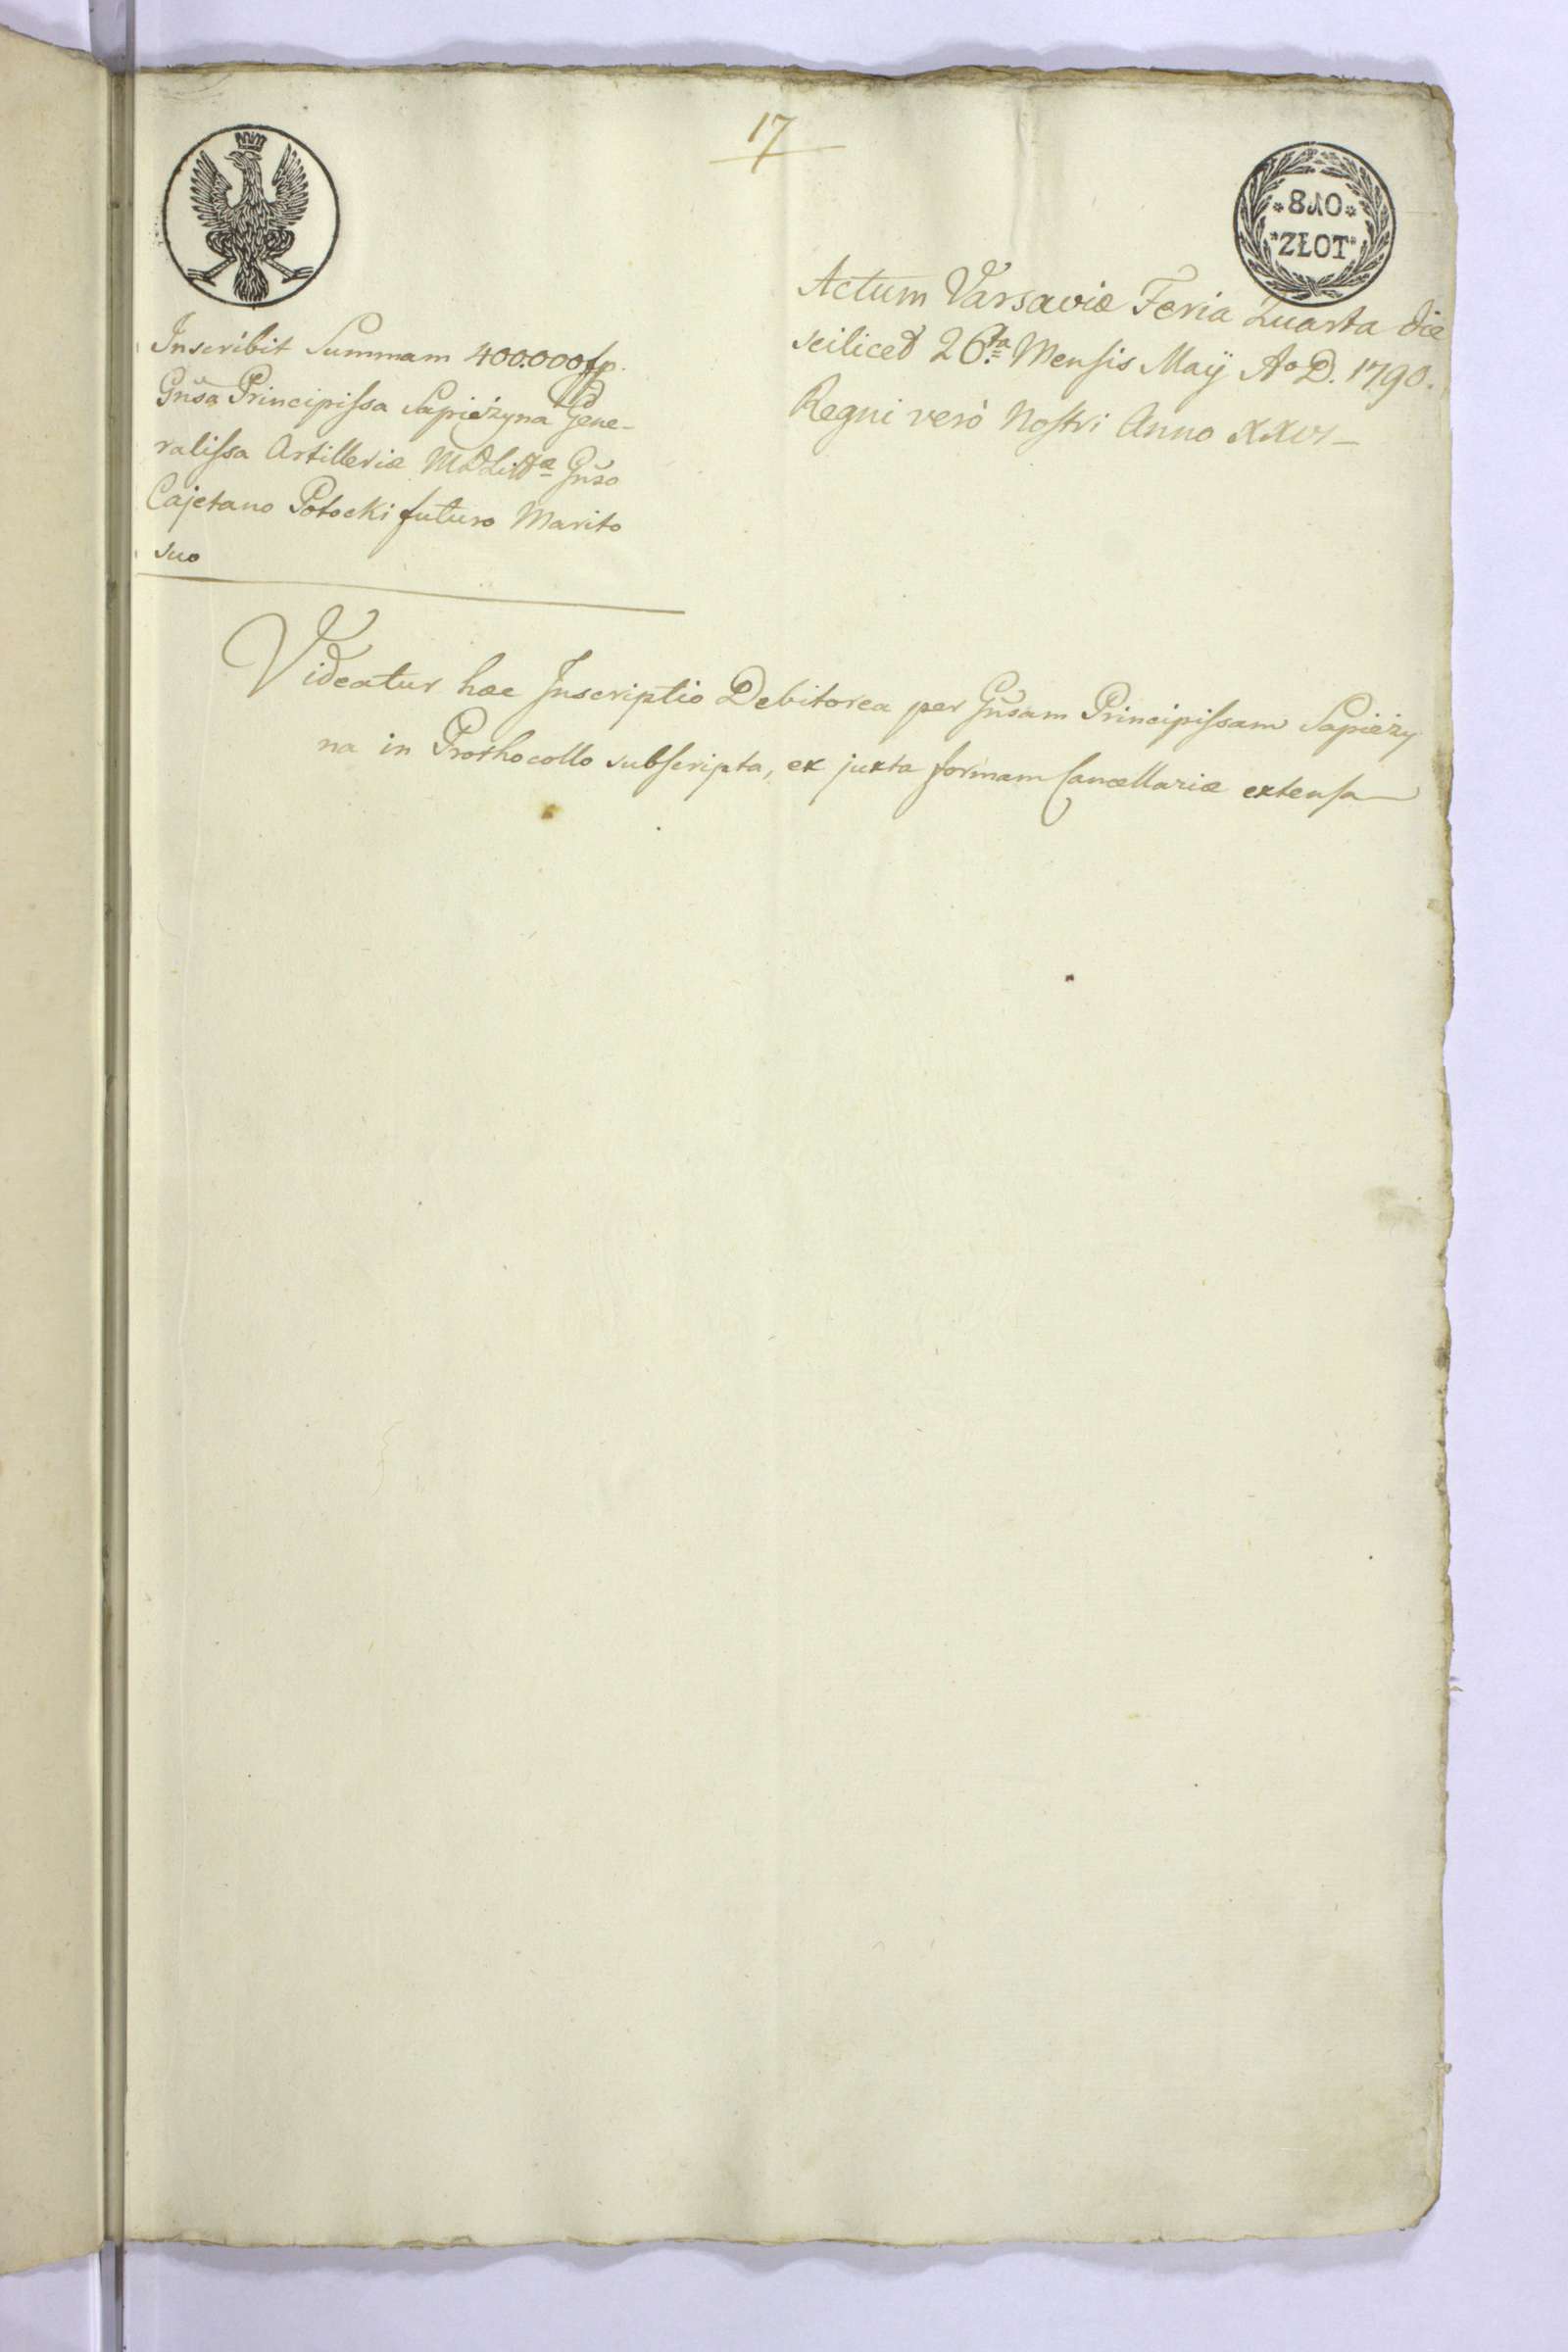 17
8ИO
ZŁOT
Actum Varsaviæ Feria Quarta die
scilicet 26ta Mensis Maÿ Ao D. 1790.
Regni verò Nostri Anno XXVI
Inscribit Summam 400.000 fp.
Gnsa Principissa Sapieżyna Gene-
ralissa Artilleriæ MDLittæ Gnso
Cajetano Potocki futuro Marito
suo
Videatur hæc Inscriptio Debitorea per Gnsam Principissam Sapieży
na in Prothocollo subscripta, ex juxta formam Cancellariæ extensa